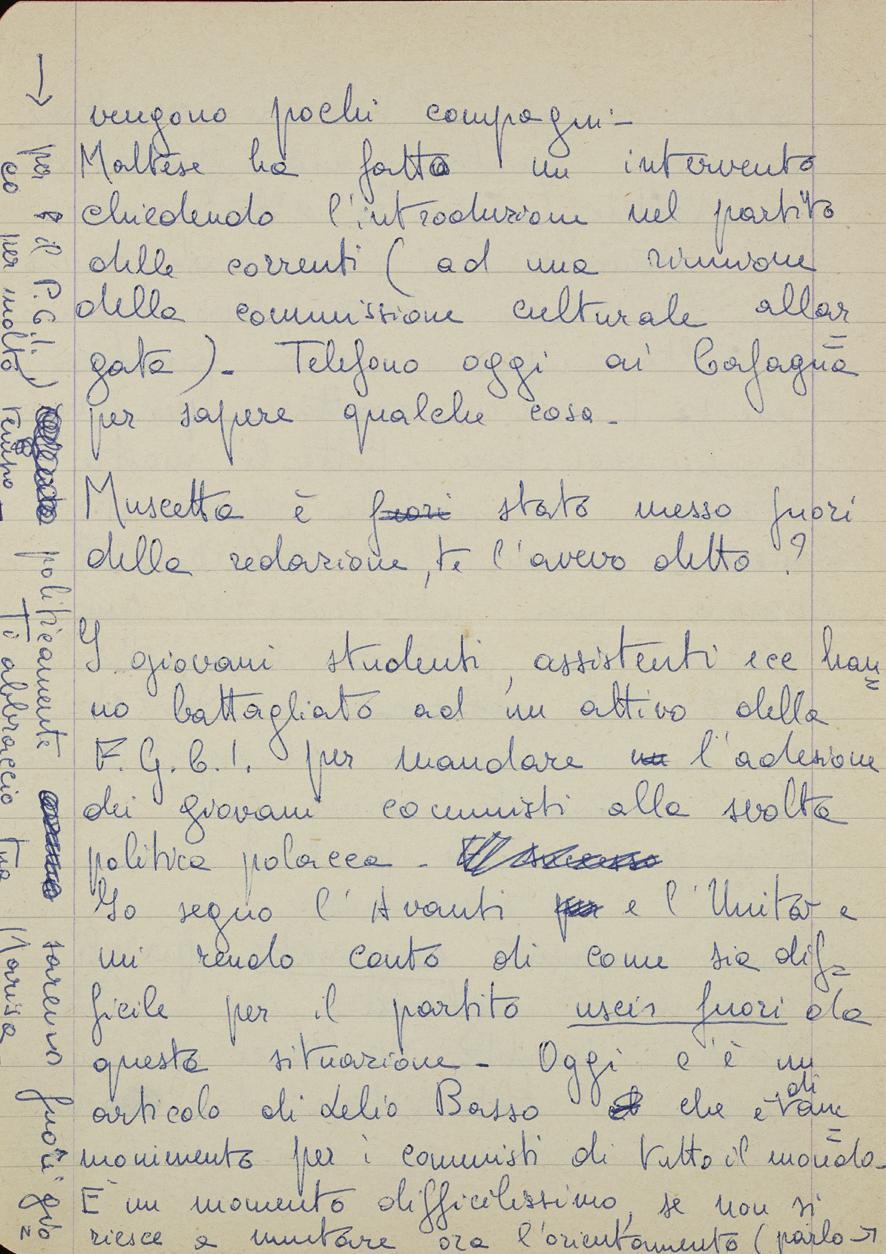 vengono pochi compagni -
Maltese ha fatto un intervento
chiedendo l'introduzione nel partito
delle correnti (ad una riunione
della commissione culturale allar
gata) - Telefono oggi ai Cafagna
per sapere qualche cosa -
Muscetta è fuori stato messo fuori
della redazione, te l'avevo detto?
I giovani studenti, assistenti ecc han
no battagliato ad un attivo della
F.G.C.I. per mandare un l'adesione
dei giovani comunisti alla svolta
politica polacca -
Io seguo l'Avanti per e l'Unità e
mi rendo conto di come sia dif=
ficile per il partito uscir fuori da
questa situazione - Oggi c'è un
articolo di Lelio Basso che è di ram
monimento per i comunisti di tutto il mondo -
È un momento difficilissimo, se non si
riesce a mutare ora l'orientamento (parlo →
→ per il P.C.I.) politicamente saremo fuori gio
co per molto tempo - Ti abbraccio tua Marisa -